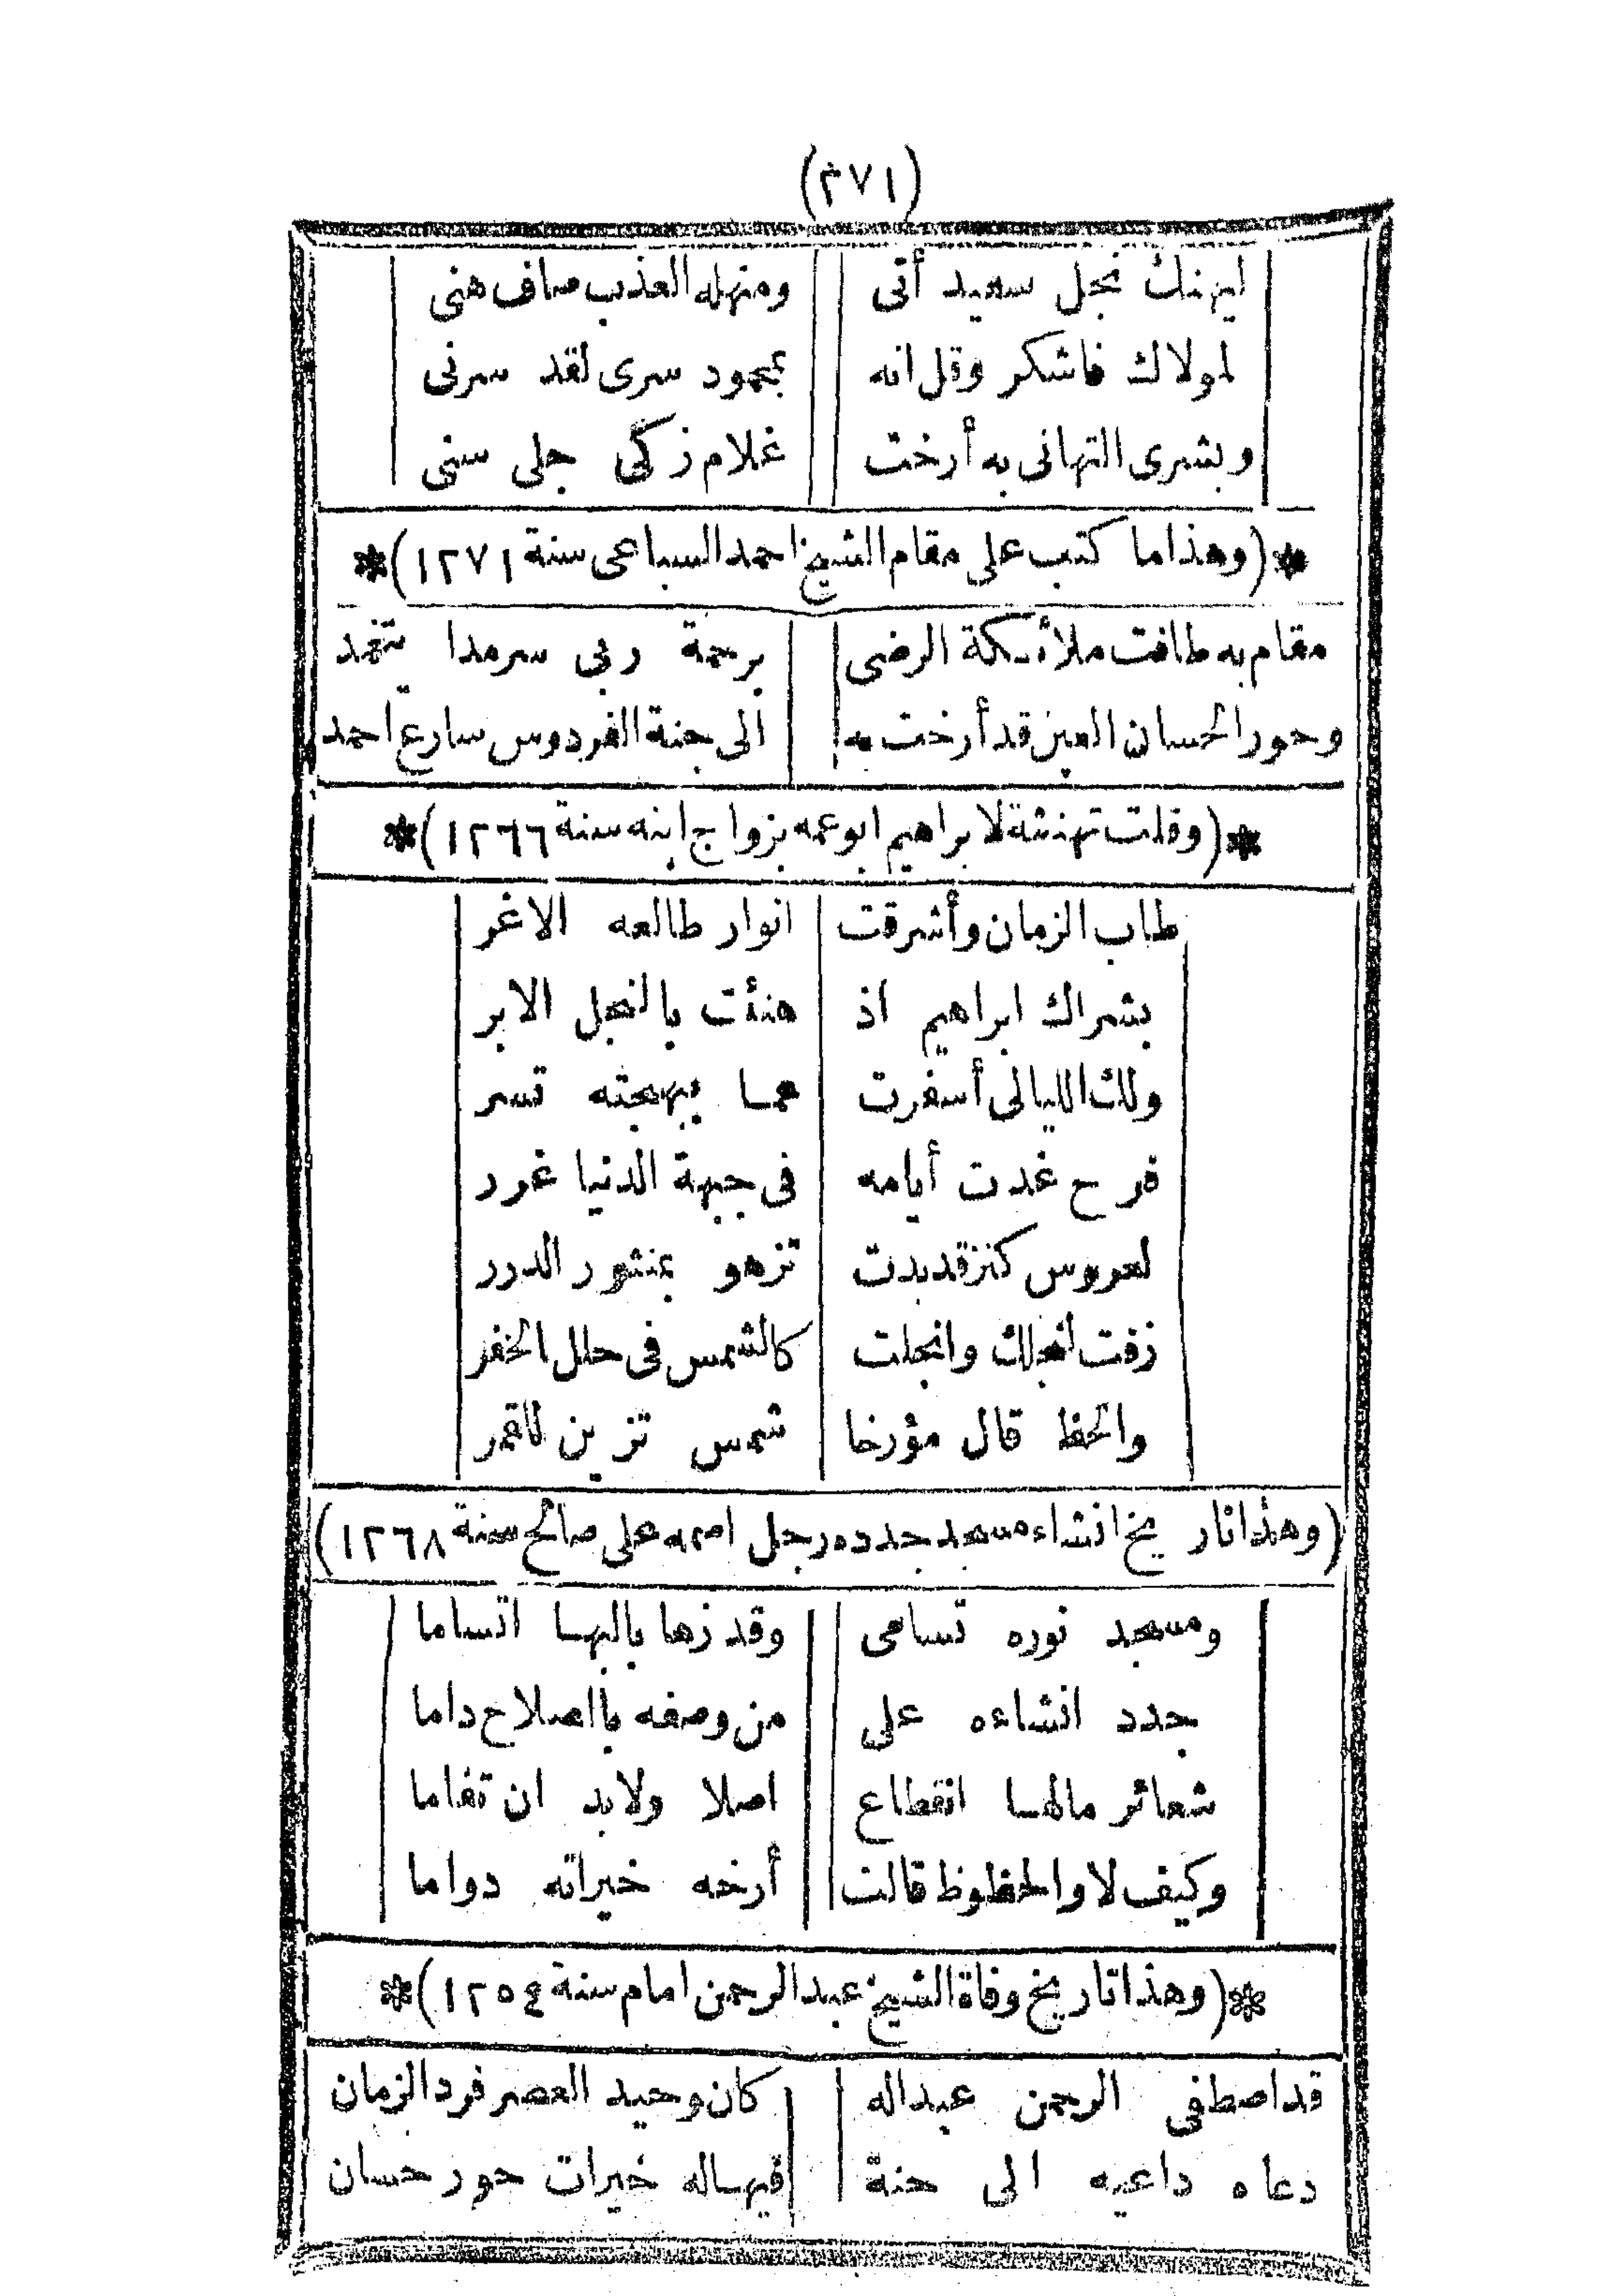 (٢٧١)
ليهنك نجل سعيد أتى ومنهله العذب صاف هنى
لمولاك فاشكر وقل انه بمحمود سرى لقد سرنى
وبشرى التهانى به أرخت غلام زكى جلى سنى
*(وهذا ما كتب على مقام الشيخ احمد السباعى سنة ١٢٧١)*
مقام به طافت ملائكة الرضى برحمة ربى سرمدا يتغمد
وحور الحسان العين قد أرخت به الى جنة الفردوس سارع احمد
*(وقلت تهنئة لابراهيم ابو عمه بزواج ابنه سنة ١٢٦٦)*
طاب الزمان وأشرقت انوار طالعه الاغر
بشراك ابراهيم اذ هنئت بالنجل الابر
ولك الليالى أسفرت عما ببهجته تسر
فرح غدت أيامه فى جبهة الدنيا غرر
لعروس كنز قد بدت تزهو بمنثور الدرر
زفت لنجلك وانجلت كالشمس فى حلل الخفر
والحظ قال مؤرخا شمس تزين للقمر
(وهذا تاريخ انشاء مسجد جدده رجل اسمه على صالح سنة ١٢٦٨)
ومسجد نوره تسامى وقد زها بالبها اتساما
جدد انشاءه على من وصفه بالصلاح داما
شعائر مالها انقطاع اصلا ولابد ان تقاما
وكيف لا والحظوظ قالت أرخه خيراته دواما
*(وهذا تاريخ وفاة الشيخ عبد الرحمن امام سنة ١٢٥٤)*
قد اصطفى الرحمن عبداله كان وحيد العصر فرد الزمان
دعاه داعيه الى جنة فيها له خيرات حور حسان